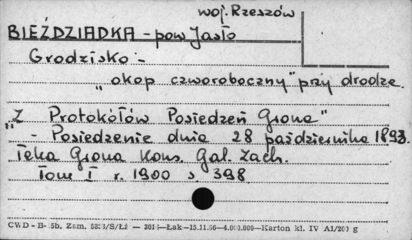 woj. Rzeszów
BIEŹDZIADKA - pow Jasło
Grodzisko -
"okop czworoboczny" przy drodze.
"Z Protokółów Posiedzeń Grona"
- Posiedzenie dnia 28 października 1893.
Teka Grona Kons. Gal. Zach.
Tom I r. 1900 s. 398
CWD - B- 5b. Zam. 5223/S/Ł - 3018-Łak-15.11.56-4.000.000-Karton kl. IV A1/200 g